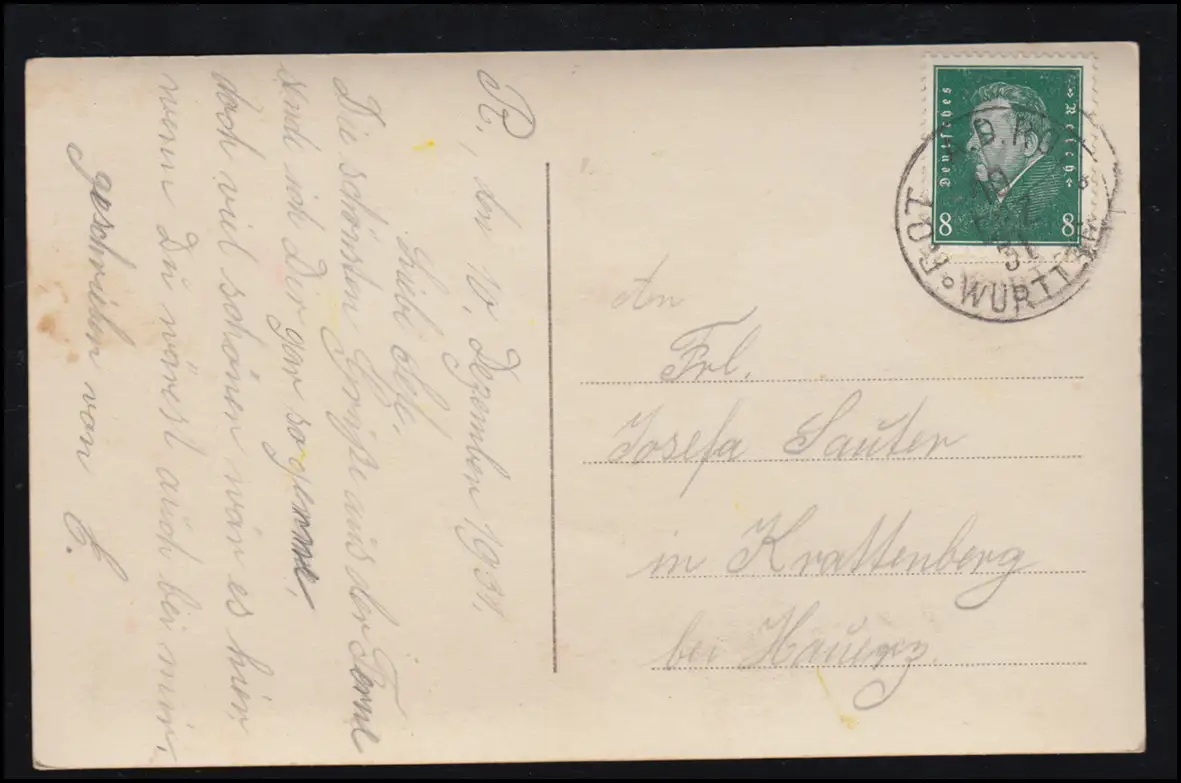 R, den 10. Dezember 1931.
Liebe
Die schönsten Grüße aus der Ferne
send ich Dir gar so gerne,
doch viel schöner wär es hier,
wenn Du wärest auch bei mir.
geschrieben von E.
Deutsches Reich
8 8
ROT A.D. ROT
10
12
31
WÜRTT
An
Frl.
Josefa Sauter
in Krattenberg
bei Hauerz.